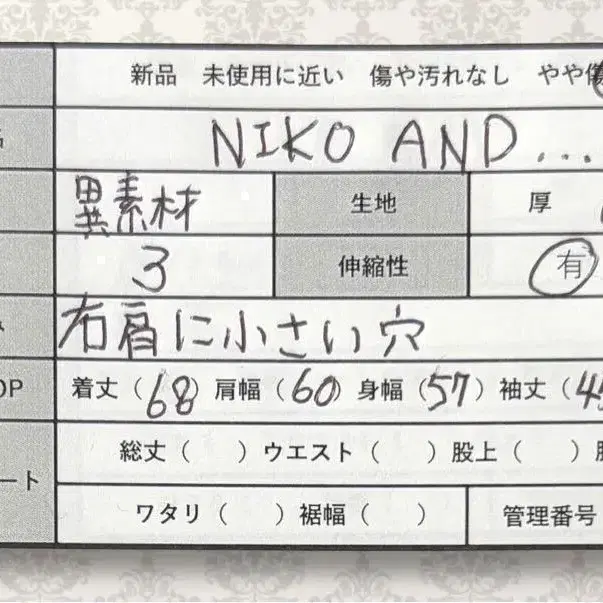 新品 未使用に近い 傷や汚れなし やや傷
NIKO AND...
異素材 生地 厚
3 伸縮性 有
右肩に小さい穴
OP 着丯(68) 肩幅(60) 身幅(57) 袖丈(45
総丈( ) ウエスト( ) 股上( )
ート
ワタリ( ) 裾幅( ) 管理番号